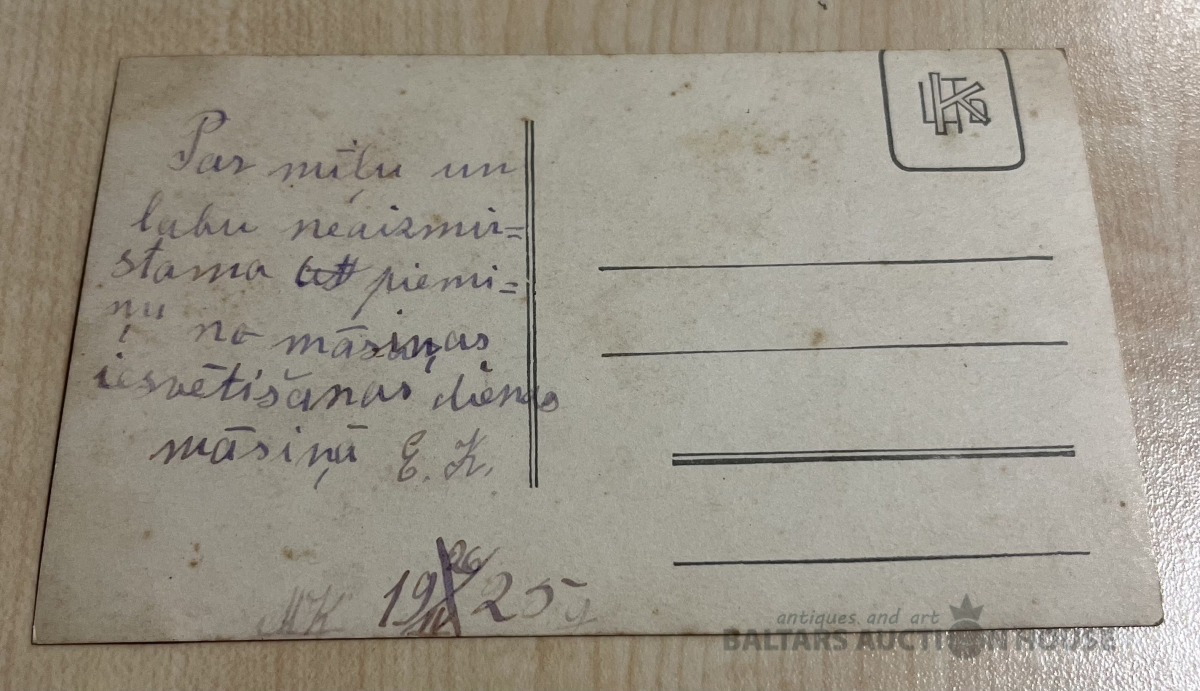 Par miļu un
labu neaizmir=
stama piemi=
ņu no māsiņas
iesvētišanas dienas
māsiņā E. K.
MK 19 25 g
antiques and art
BALTARS AUCTION HOUSE